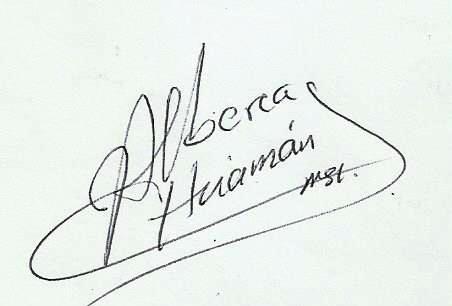 Alberca
Huamán
mst.